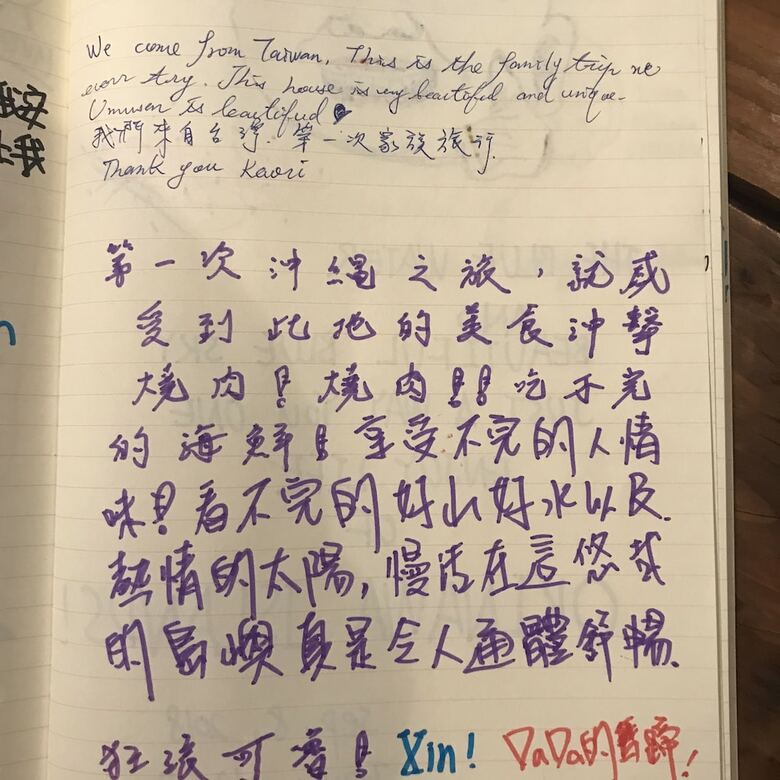 We come from Taiwan, This is the family trip we
ever try. This house is very beautiful and unique.
Umusen is beautiful
我們來自台灣, 第一次家族旅行.
Thank you Kaori
我
上我
第一次沖繩之旅,就感
受到此地的美食沖擊
燒肉!燒肉!!吃不完
的海鮮!享受不完的人情
味!看不完的好山好水以及
熱情的太陽,慢活在這悠哉
的島嶼真是令人通體舒暢.
Xin! DaDa的